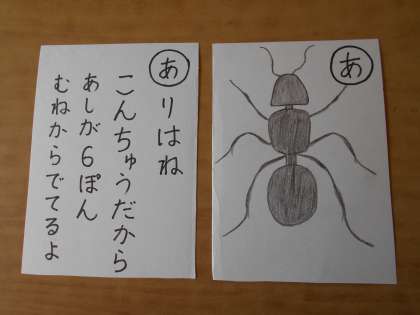 ありはね
こんちゅうだから
あしが6ぽん
むねからでてるよ
あ